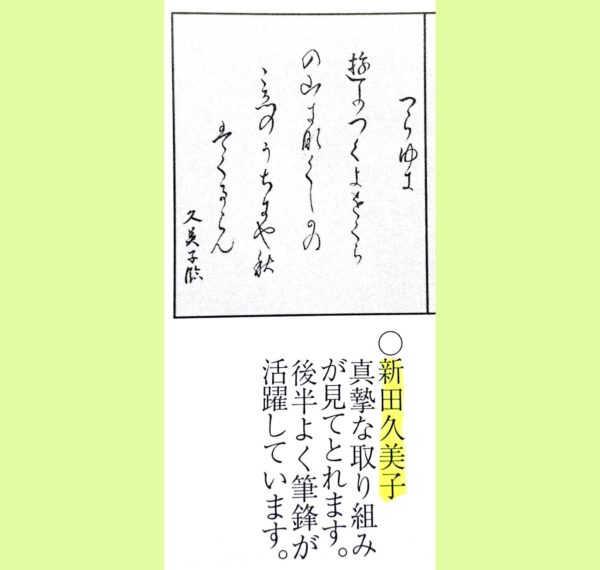 つらゆき
遊ふつくよをくら
の山に那くしの
こ恵のうちにや秋
はくるらん
久美子臨
○新田久美子
真摯な取り組み
が見てとれます。
後半よく筆鋒が
活躍しています。